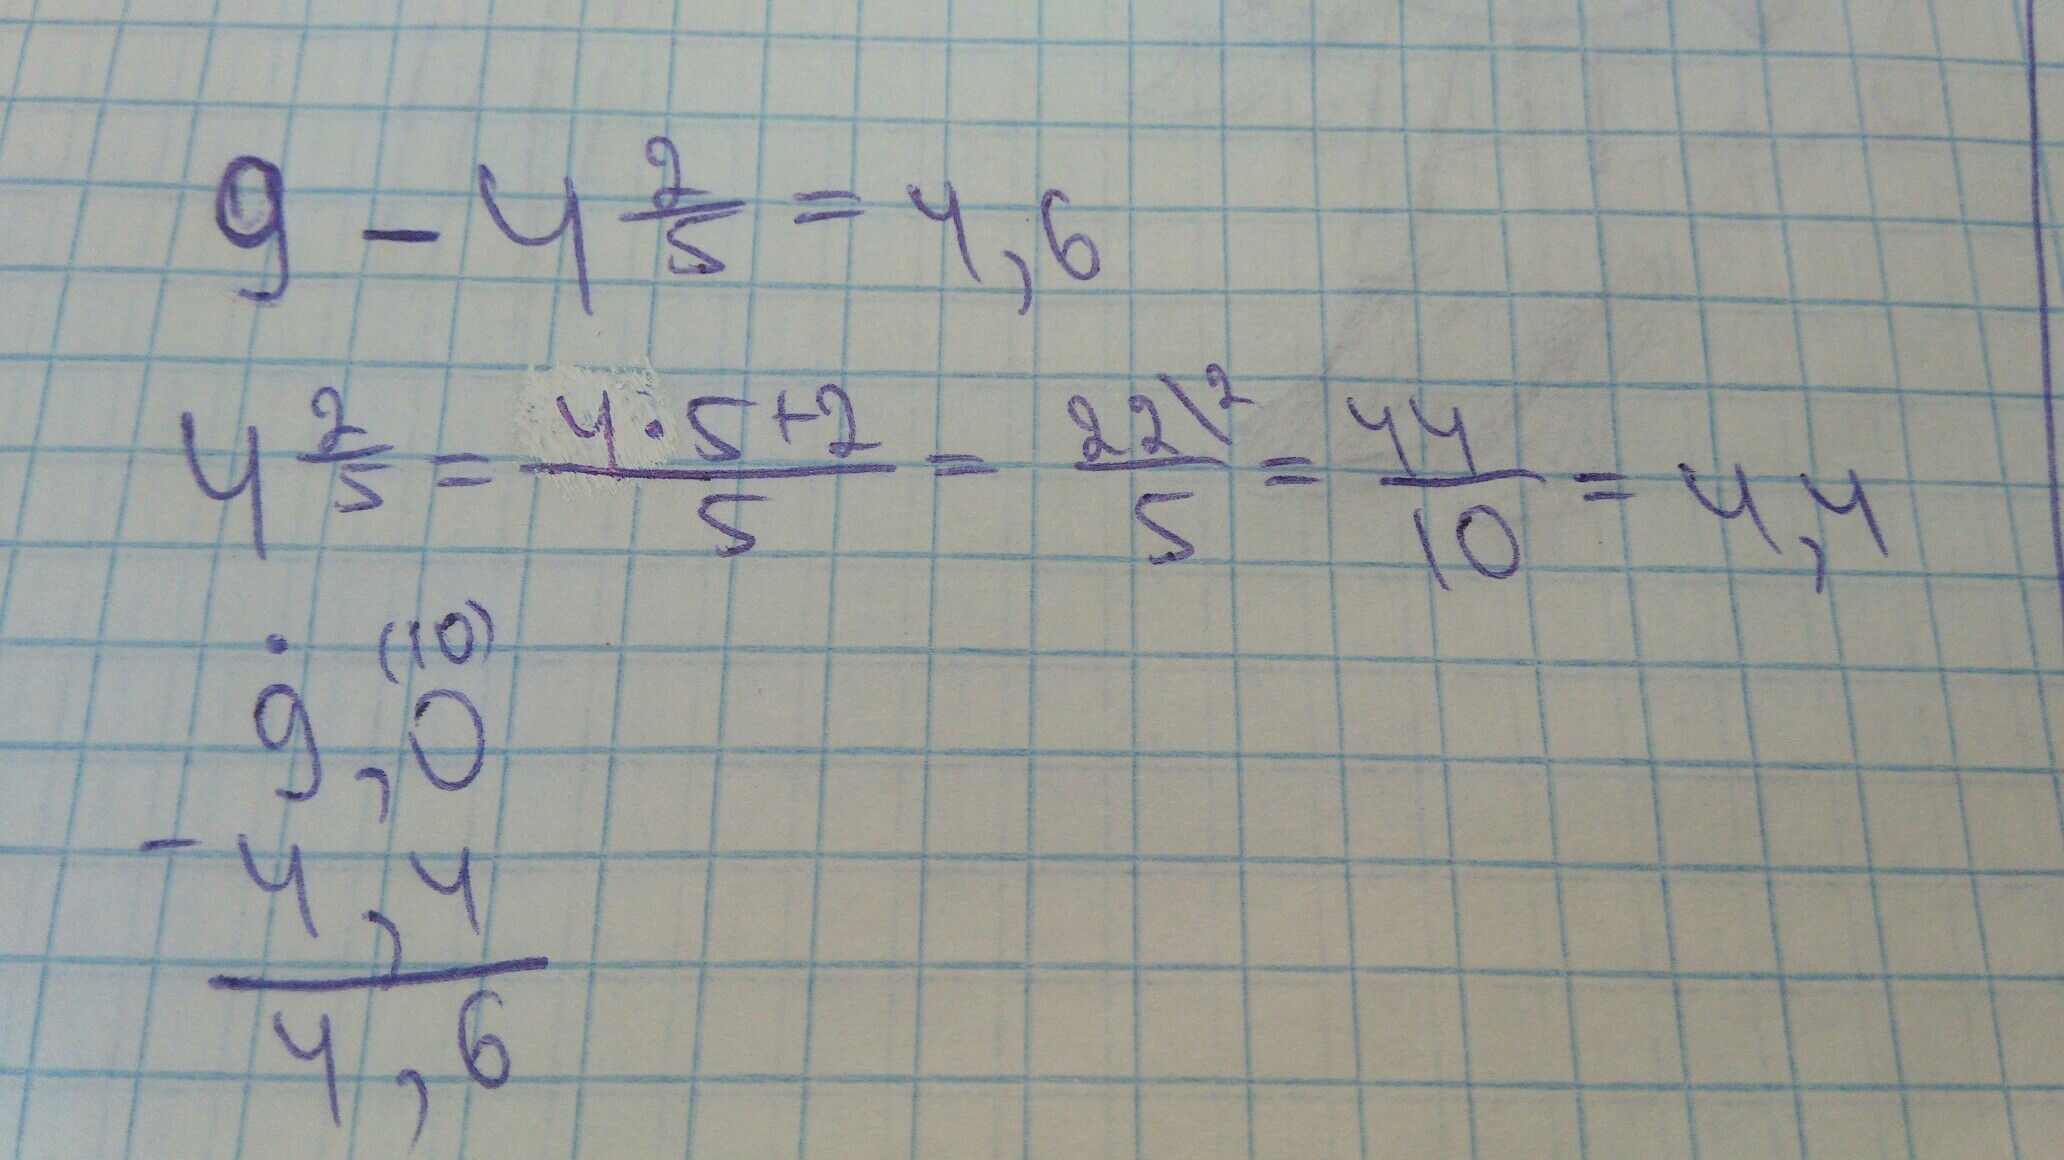 9 - 4 2/5 = 4,6
4 2/5 = (4·5+2)/5 = 22\2/5 = 44/10 = 4,4
· (10)
9,0
- 4,4
4,6